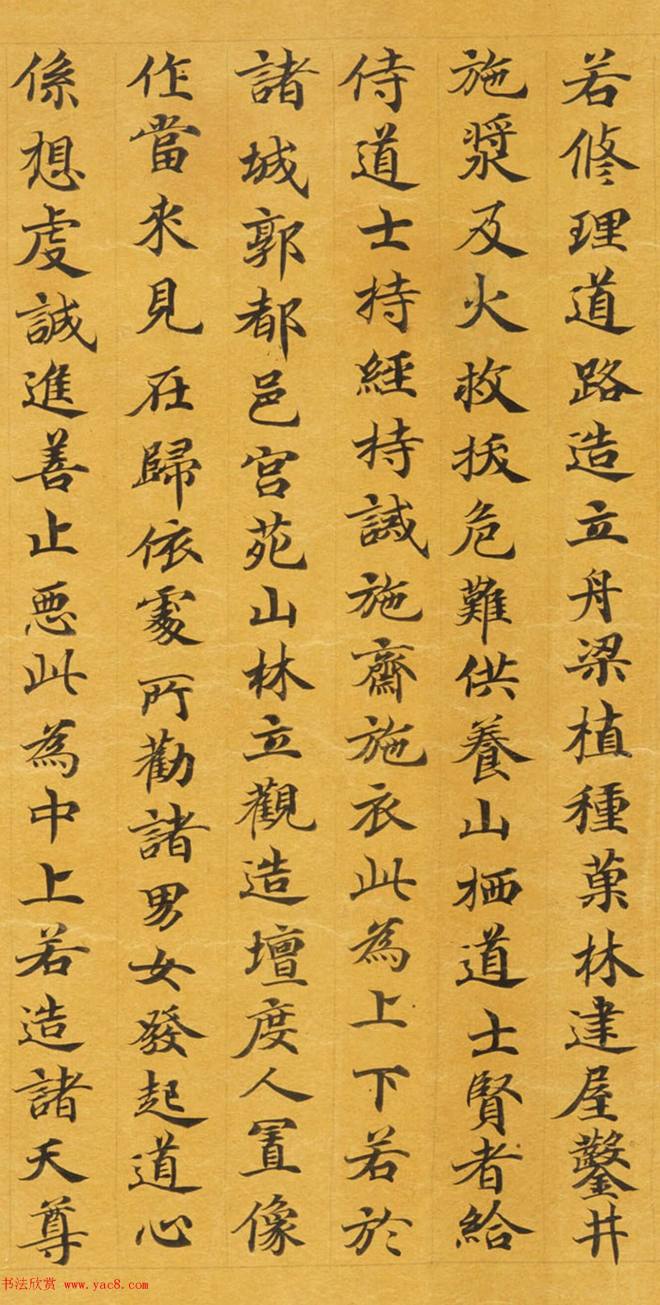 若修理道路造立舟梁植種菓林建屋鑿井
施漿及火救拔危難供養山栖道士賢者給
侍道士持經持誡施齋施衣此為上下若於
諸城郭都邑宮苑山林立觀造壇度人置像
作當來見在歸依處所勸諸男女發起道心
係想虔誠進善止惡此為中上若造諸天尊
书法欣赏 www.yac8.com